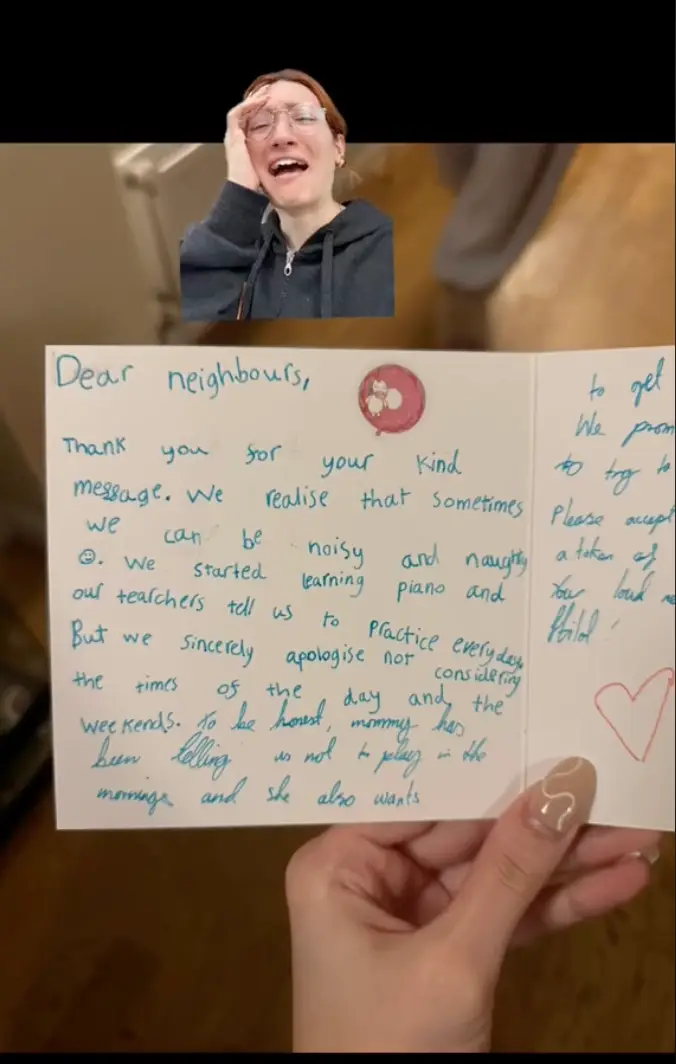 Dear neighbours,
Thank you for your kind
message. We realise that sometimes
we can be noisy and naughty
☺. We started learning piano and
our tearchers tell us to practice everyday.
But we sincerely apologise not considering
the times of the day and the
weekends. To be honest, mommy has
been telling us not to play in the
mornings and she also wants
to get
We prom
to try to
Please accept
a token of
Your loud ne